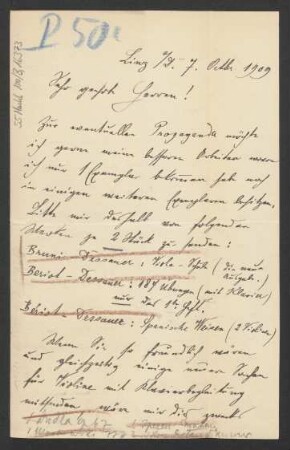 P 50
Linz a/D. 7. Octb. 1909
Sehr geehrte Herren!
Zur eventuellen Propaganda möchte
ich gerne meine besseren Arbeiten wovon
ich nur 1 Exemplar bekommen habe noch
in einigen weiteren Exemplaren besitzen.
Bitte mir deshalb von folgenden
Werken je 2 Stück zu senden:
Bruni-Dessauer: Viola-Schule (die neue
Ausgabe.)
Beriot-Dessauer: Übungen (mit Klavier)
nur das 1te Heft.
Beriot-Dessauer: Spanische Weisen (2 Violinen)
Wenn Sie so freundlich wären
und gleichzeitig einige neuere Sachen
für Violine mit Klavierbegleitung
mitsenden, wäre mir dies